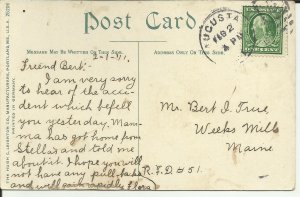 Post Card
MESSAGE MAY BE WRITTEN ON THIS SIDE.
ADDRESS ONLY ON THIS SIDE.
AUGUSTA
FEB 2
4 PM
2-1-'11.
Friend Bert:
I am very sorry
to hear of the acci-
dent which befell
you yesterday. Mam-
ma has got home from
Stella's and told me
about it. I hope you will
not have any pull backs
and will gain rapidly. Flora
Mr. Bert I. True
Weeks Mills
Maine
R.F.D #51.
THE HUGH C. LEIGHTON CO., MANUFACTURERS, PORTLAND, ME., U.S.A.